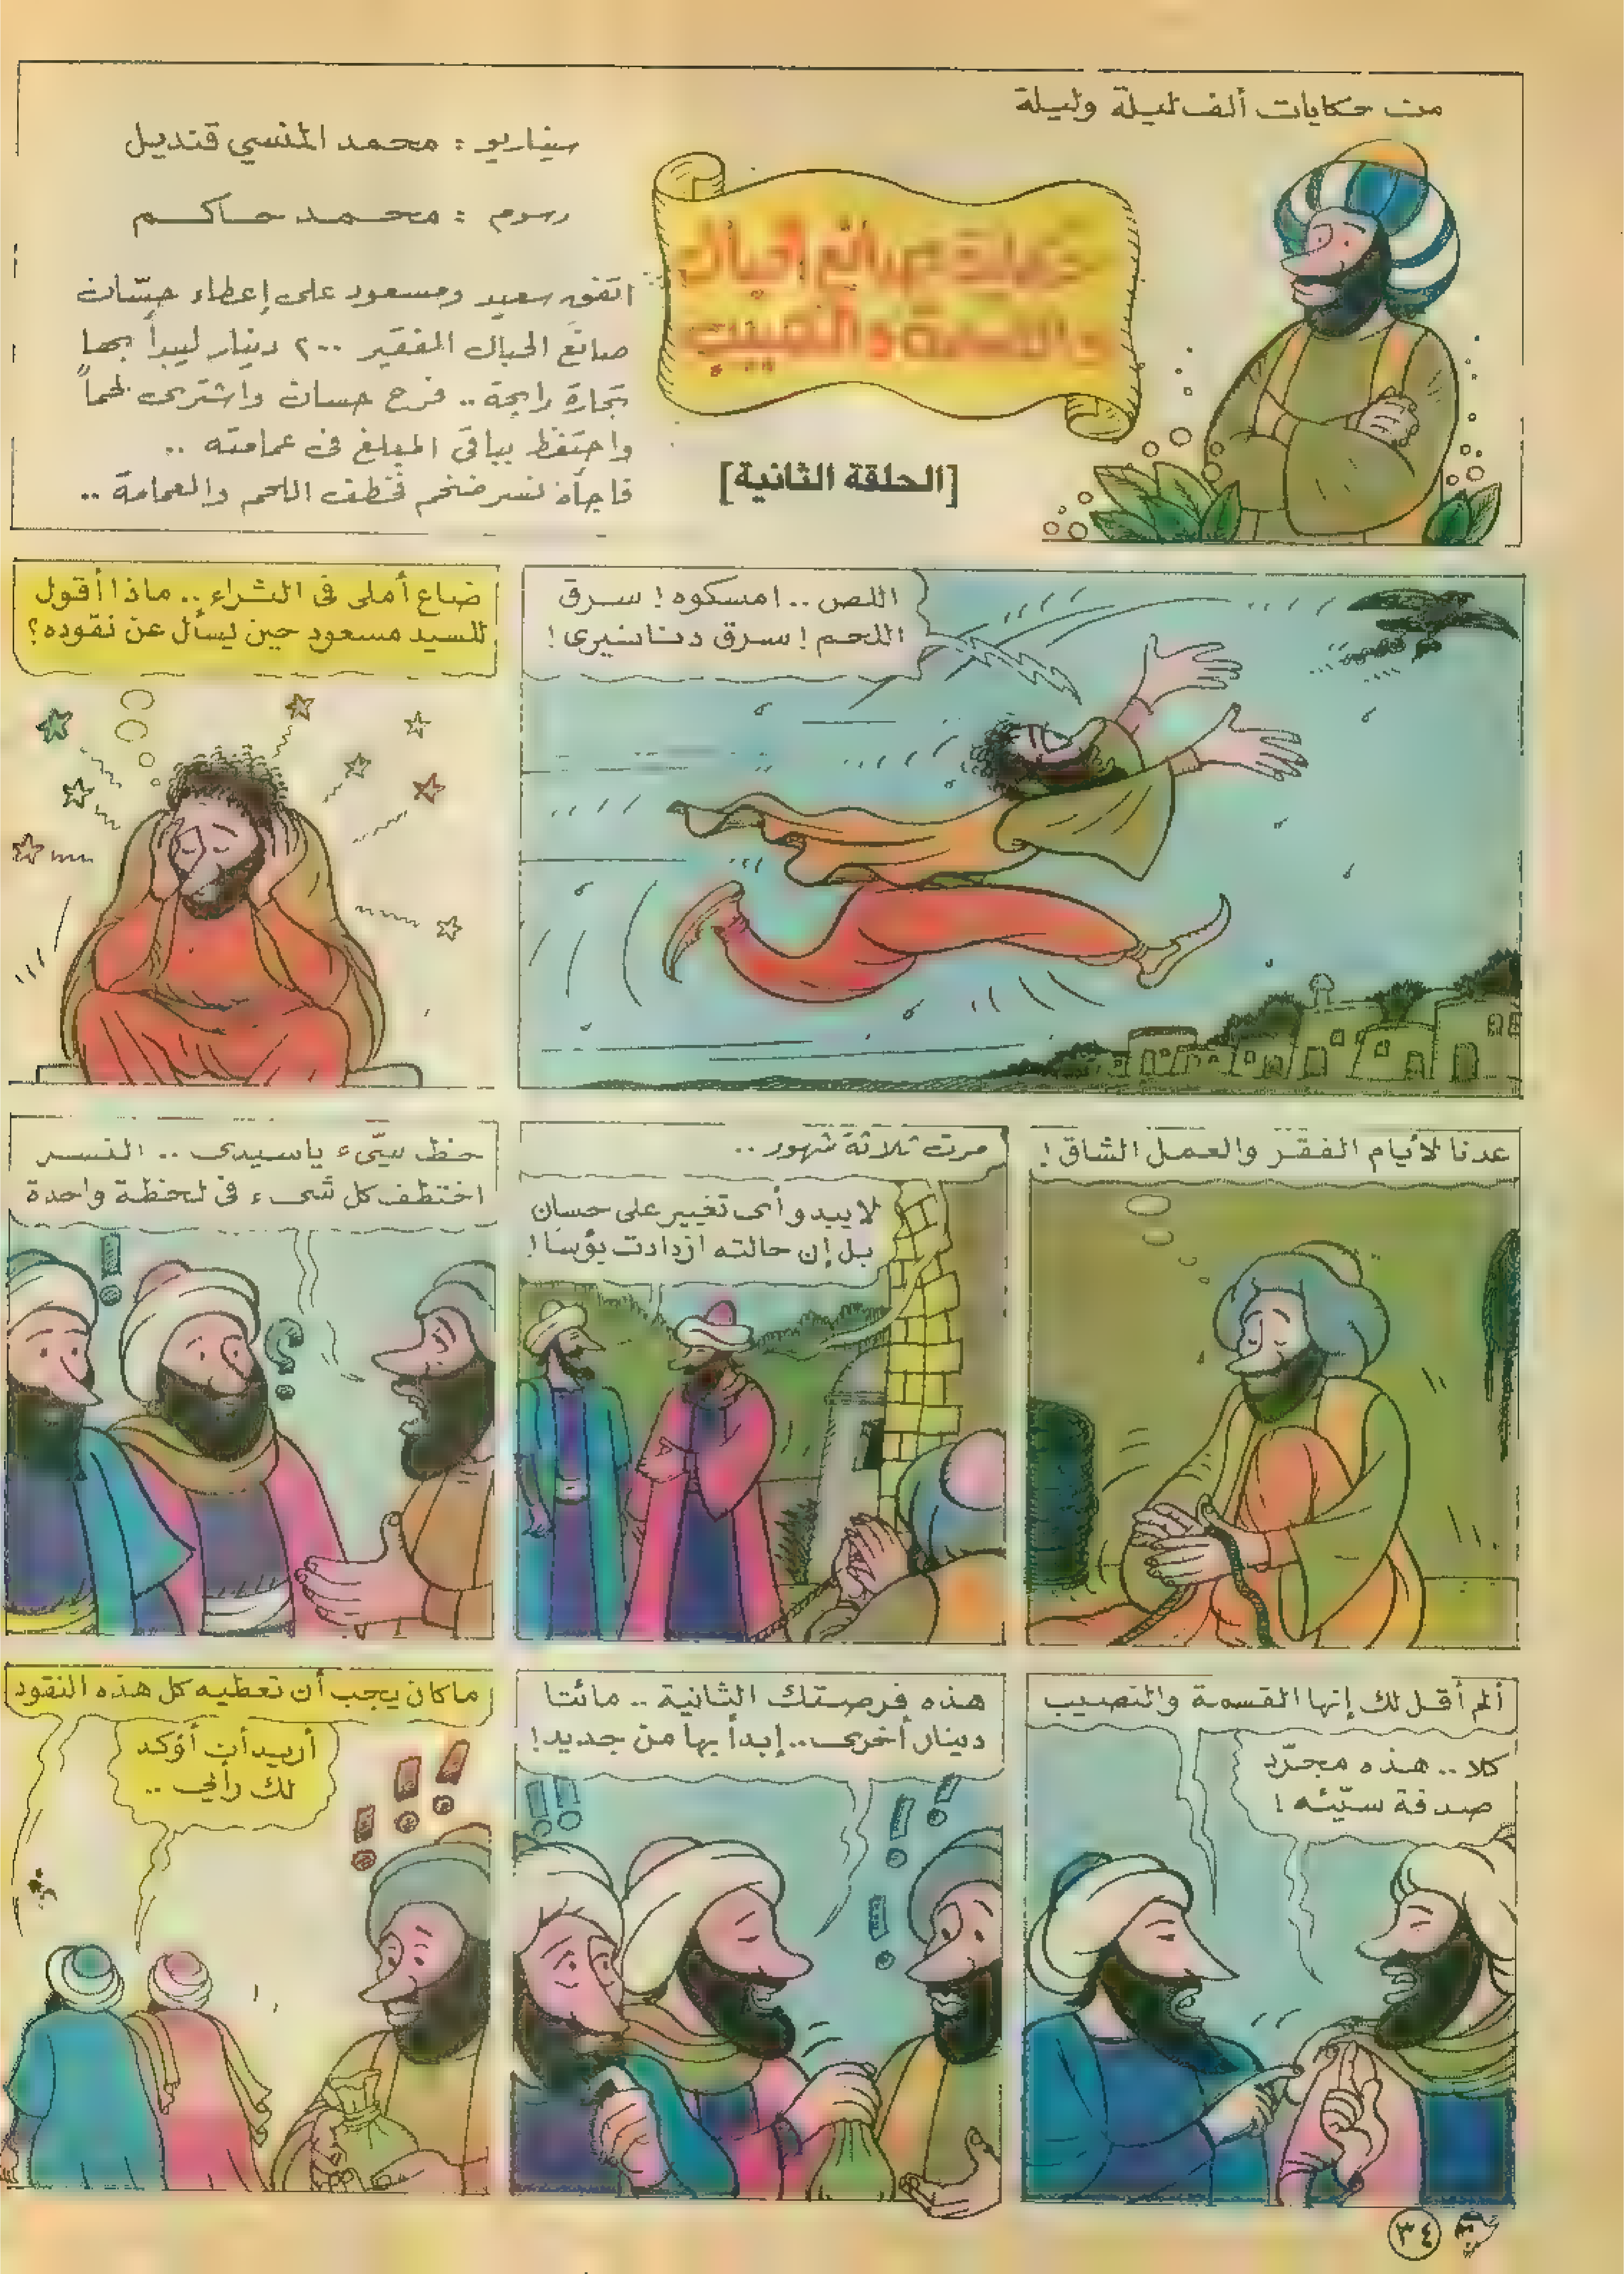 من حكايات ألف ليلة وليلة
حكاية صانع الحبال
والقسمة والنصيب
[الحلقة الثانية]
سيناريو : محمد المنسي قنديل
رسوم : محمد حاكم
اتفق سعيد ومسعود على إعطاء حسّان
صانع الحبال الفقير ٢٠٠ دينار ليبدأ بها
تجارة رابحة .. فرح حسان واشترى لحماً
واحتفظ بباقي المبلغ في عمامته ..
فاجأه نسر ضخم فخطف اللحم والعمامة ..
اللص .. امسكوه ! سرق
اللحم ! سرق دنانيرى !
ضاع أملى فى الثراء .. ماذا أقول
للسيد مسعود حين يسأل عن نقوده ؟
عدنا لأيام الفقر والعمل الشاق !
مرت ثلاثة شهور ..
لا يبدو أى تغيير على حسان
بل إن حالته ازدادت بؤسا !
حظ سيّىء ياسيدى .. النسر
اختطف كل شىء فى لحظة واحدة
ألم أقل لك إنها القسمة والنصيب
كلا .. هذه مجرّد
صدفة سيّئه !
هذه فرصتك الثانية .. مائتا
دينار أخرى .. إبدأ بها من جديد !
ماكان يجب أن تعطيه كل هذه النقود
أريد أن أؤكد
لك رأيي ..
٣٤